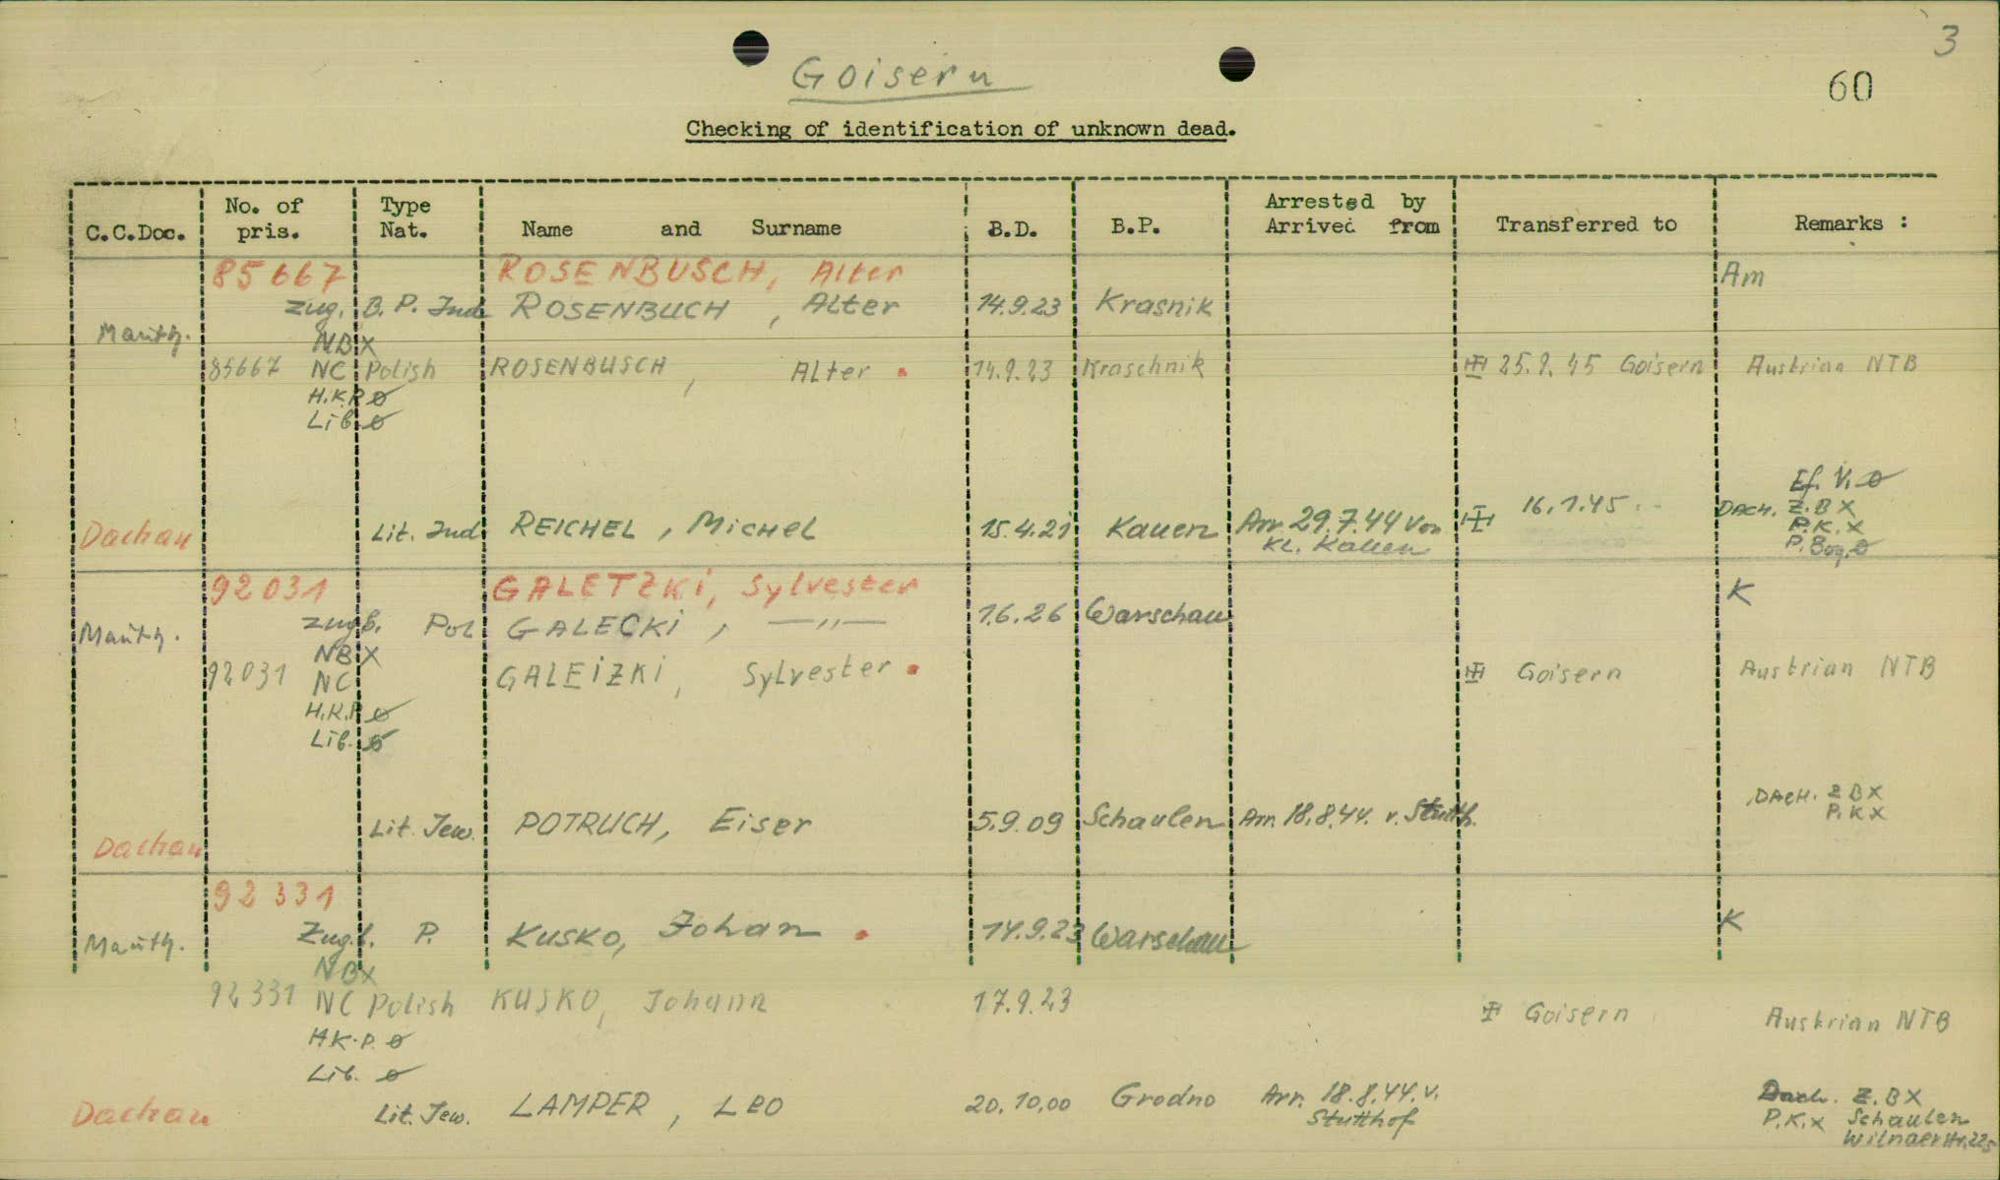 3
Goisern
60
Checking of identification of unknown dead.
C.C.Doc. No. of pris. Type Nat. Name and Surname B.D. B.P. Arrested by Arrived from Transferred to Remarks :
85667 ROSENBUSCH, Alter Am
Zug. B. P. Jud ROSENBUCH, Alter 14.9.23 Krasnik
Mauth.
NB X
85667 NC Polish ROSENBUSCH, Alter 14.9.23 Kraschnik 25.9.45 Goisern Austrian NTB
H.K.P ø
Lib. ø
Ef. V. ø
16.1.45 DACH. Z.B X
Dachau Lit. Jud REICHEL, Michel 15.4.21 Kauen Arr. 29.7.44 von P.K. X
KL. Kauen
92031 GALETZKi, Sylvester K
Mauth. Zugb. Pol GALECKi, —"— 1.6.26 Warschau
NB X
92031 NC GALEiZKi, Sylvester Goisern Austrian NTB
H.K.P ø
Lib. ø
DACH. Z B X
Dachau Lit. Jew. POTRUCH, Eiser 5.9.09 Schaulen Arr. 18.8.44. v. Stutth. P.K X
92331
Mauth. Zugb. P. KUSKO, Johan 14.9.23 Warschau K
NB X
92331 NC Polish KUSKO, Johann 17.9.23 Goisern Austrian NTB
H.K.P. ø
Lib. ø
Dachau Lit. Jew. LAMPER, LEO 20.10.00 Grodno Arr. 18.8.44. v. Dach. Z.B X
Stutthof P.K.x Schaulen